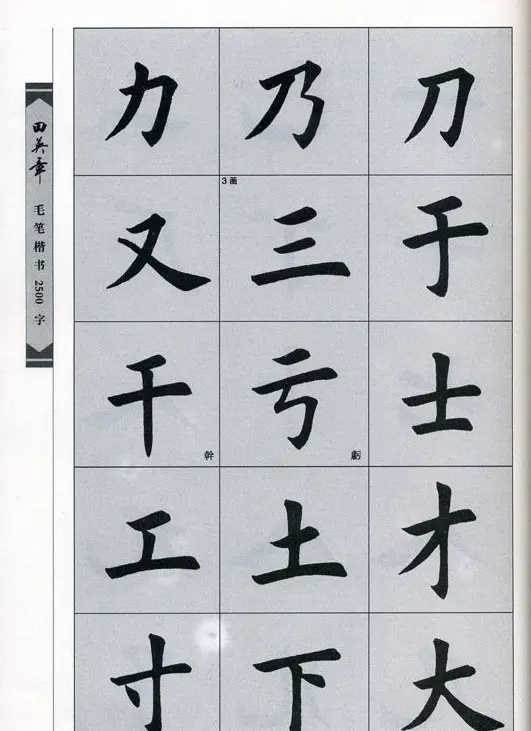 田英章 毛笔楷书2500字
力 乃 刀
又 3画 三 于
干 幹 亏 虧 士
工 土 才
寸 下 大